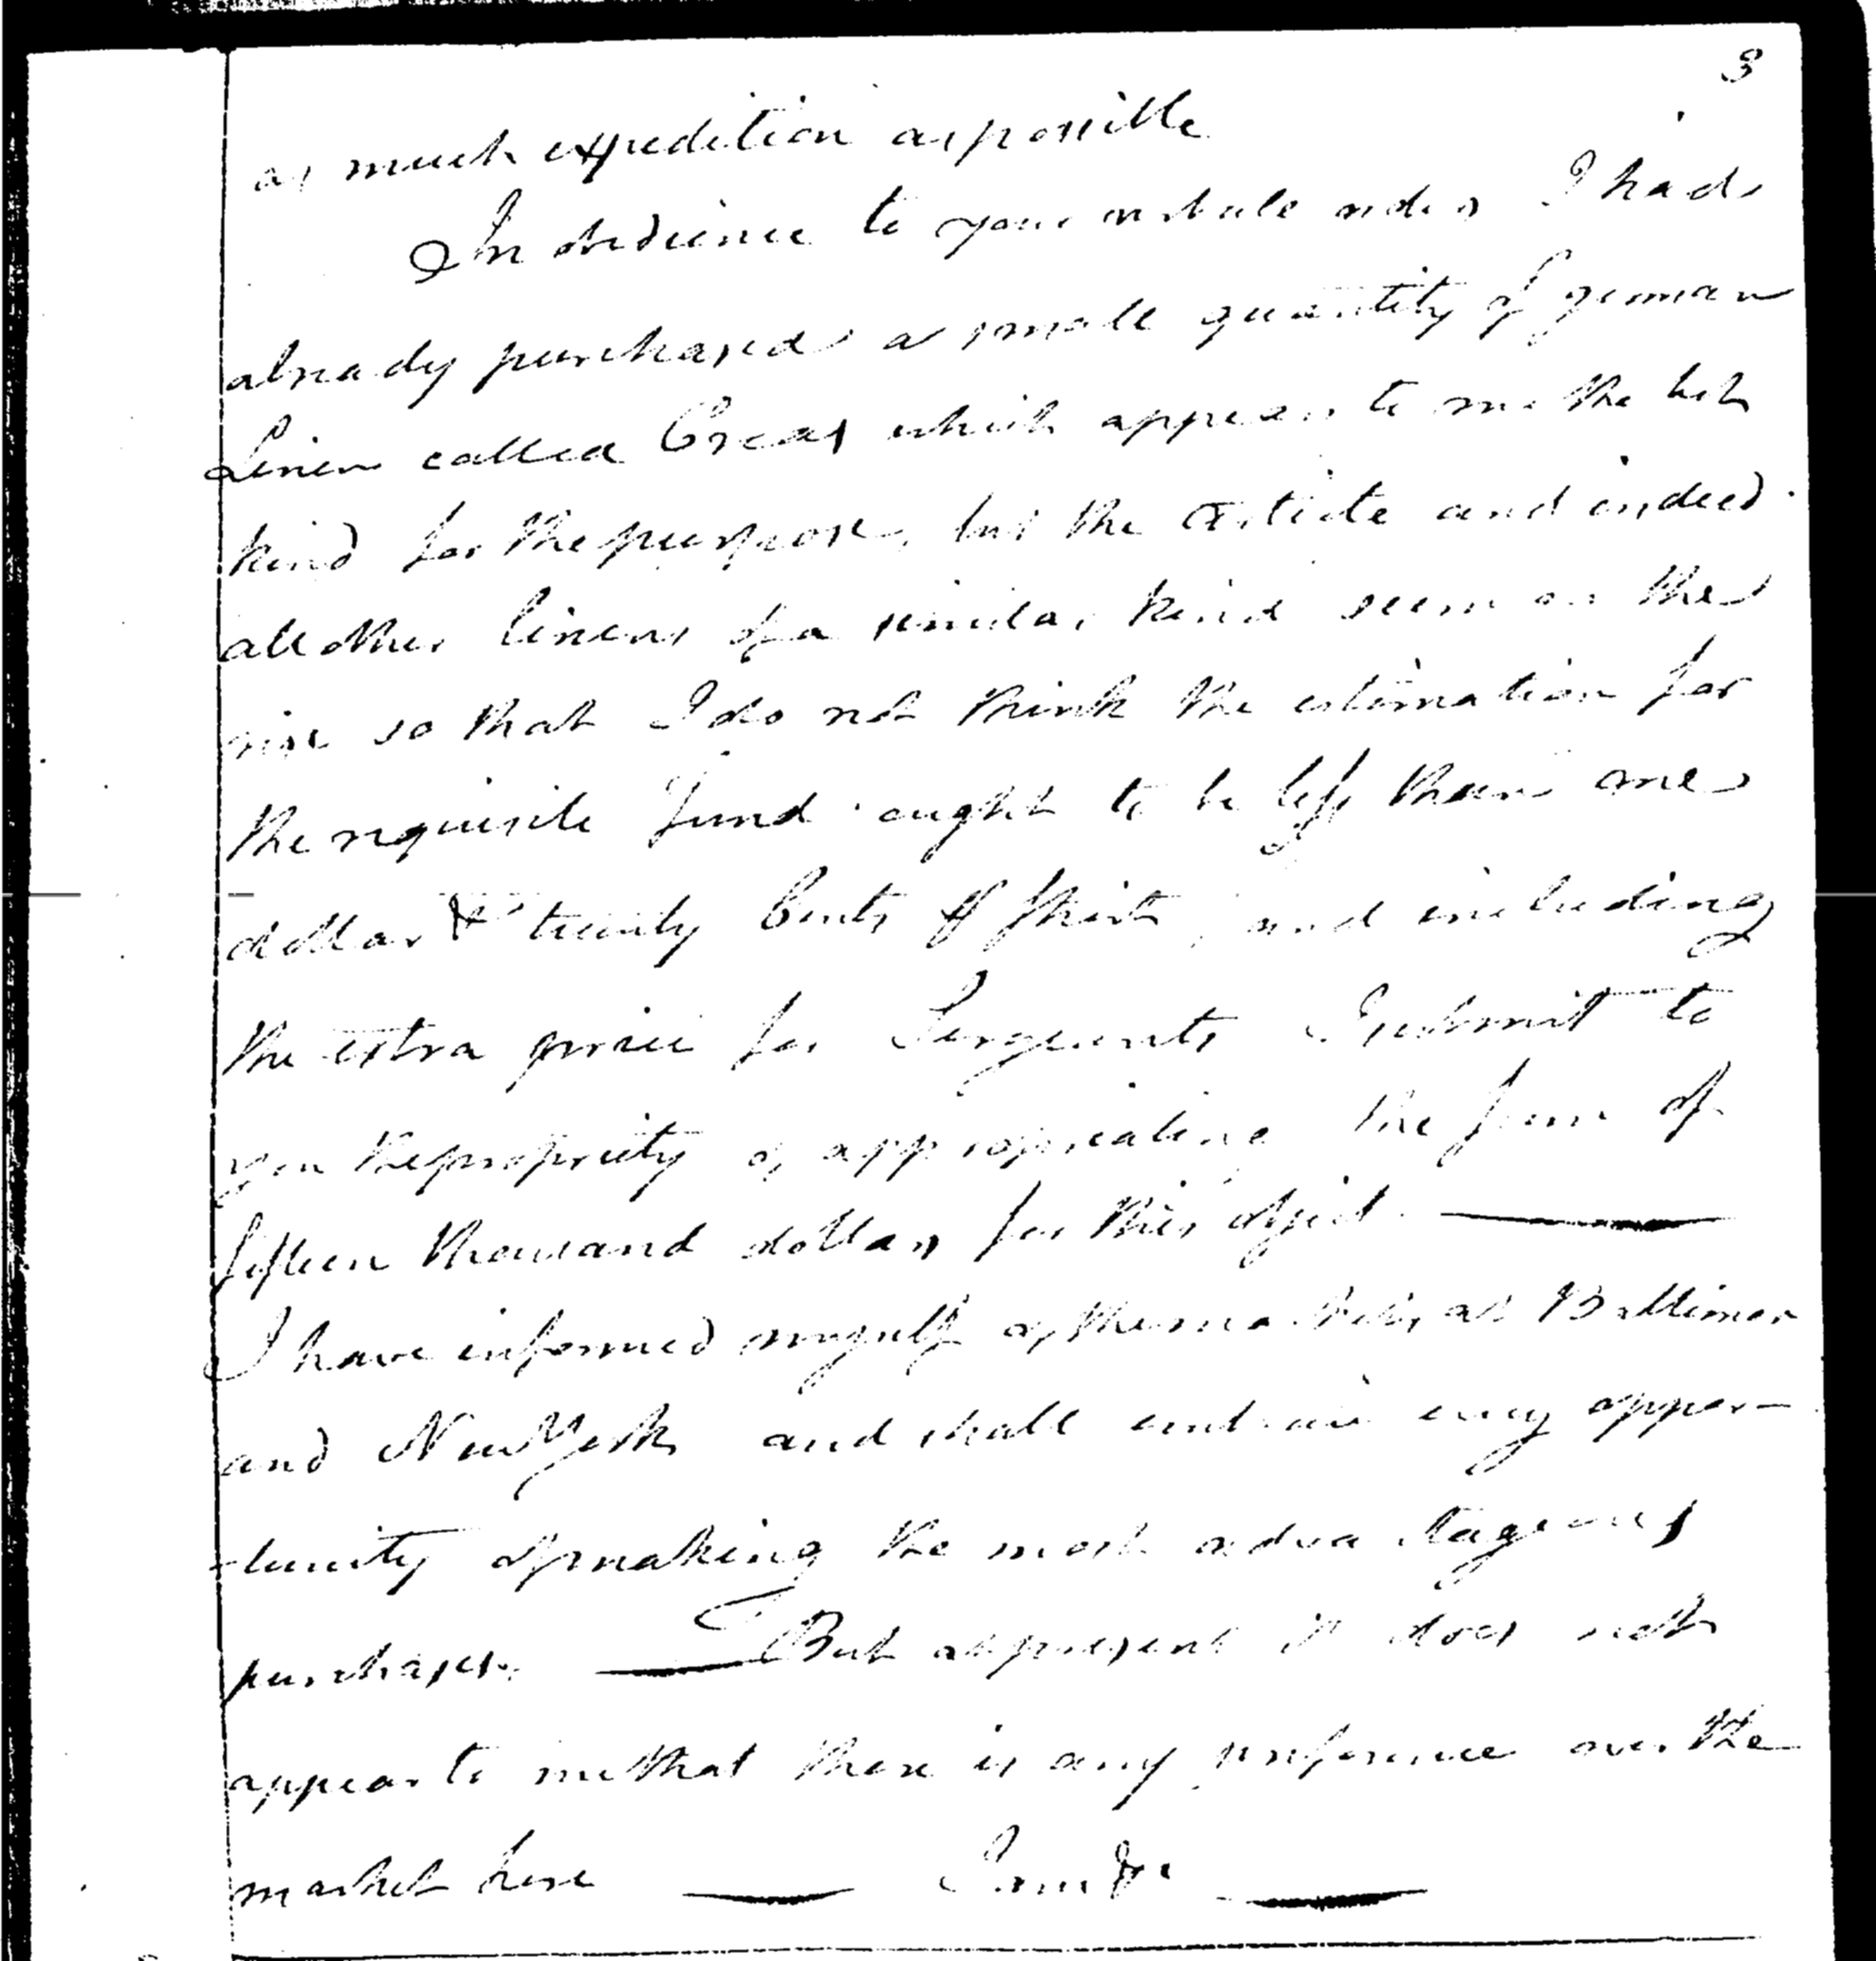 3
as much expedition as possible
In obedience to your verbale orders I had
already purchased a small quantity of german
Linen called Creas which appears to me the best
kind for the purpose, but the Article and indeed
all other linens of a similar kind seem on the
rise so that I do not think the estimation for
the requisite fund ought to be less than one
dollar & twenty Cents ⅌ shirt, and including
the extra price for Sergeants I submit to
you the propriety of appropriating the sum of
fifteen thousand dollars for this object.
I have informed myself of the markets at Baltimor
and New York and shall embrace every oppor-
tunity of making the most advantageous
purchases. But at present it does not
appear to me that there is any preference over the
market here I am &c